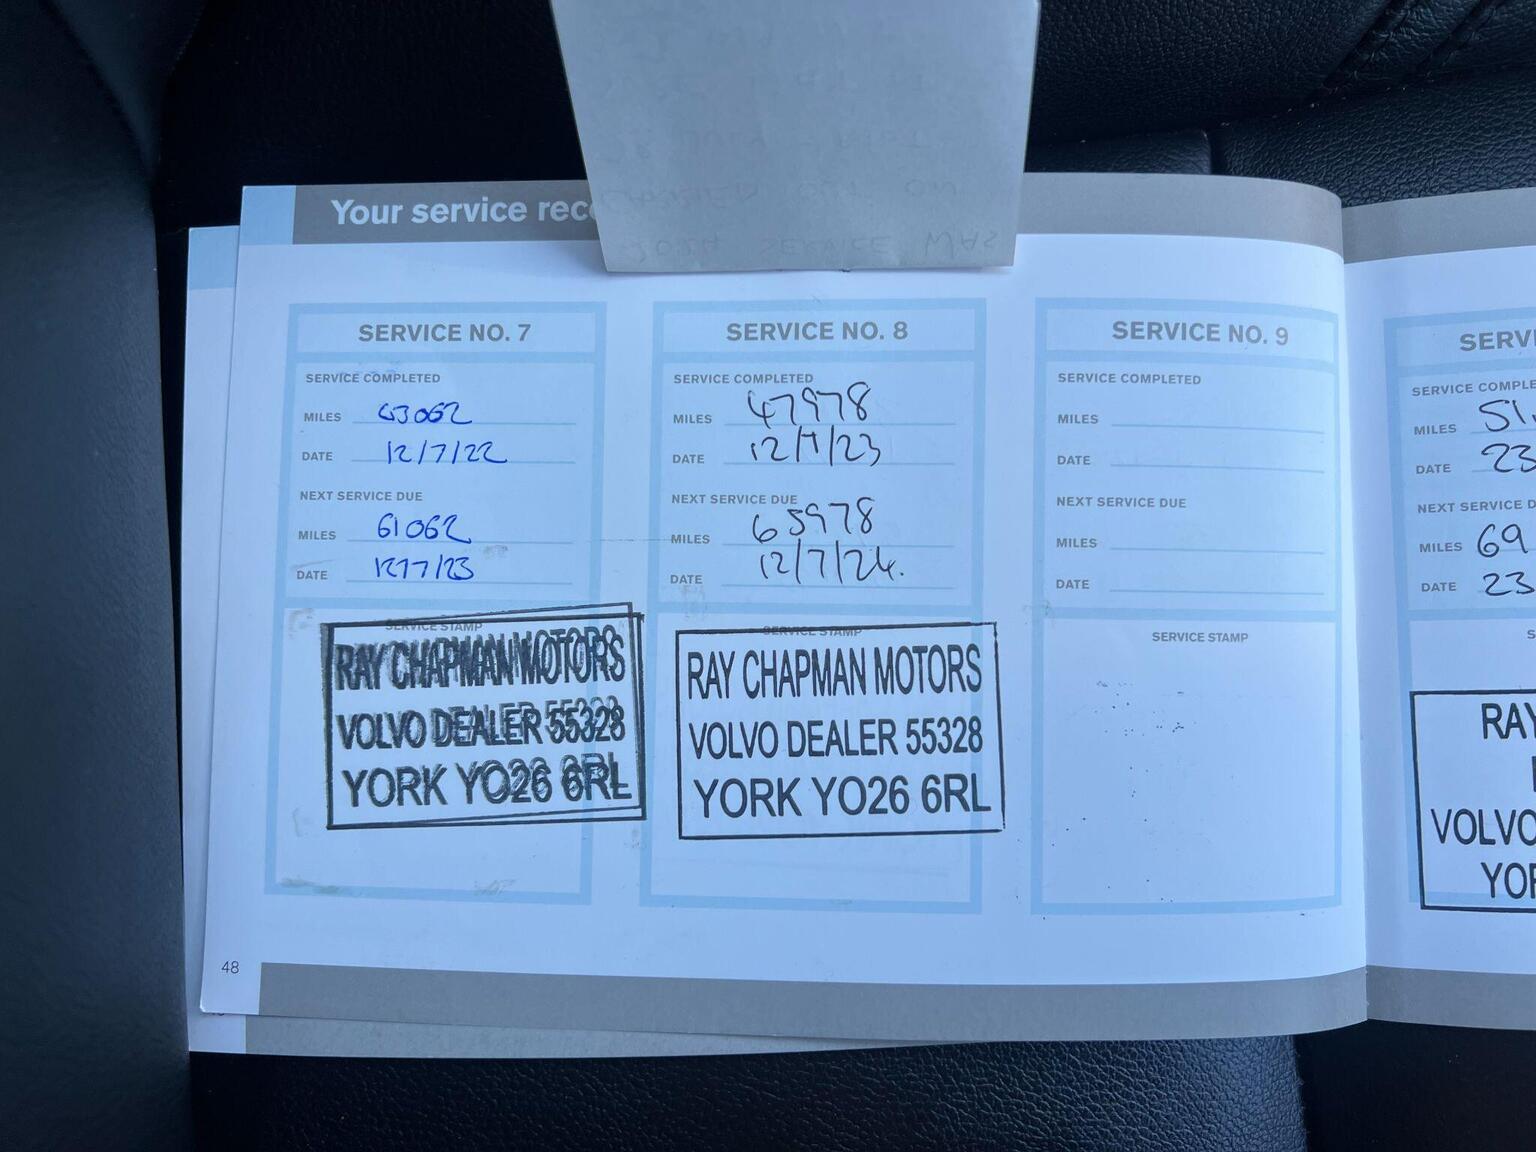 Your service rec
2024 SERVICE WAS
CARRIED OUT ON
SERVICE NO. 7
SERVICE COMPLETED
MILES 43062
DATE 12/7/22
NEXT SERVICE DUE
MILES 61062
DATE 12/7/23
SERVICE STAMP
RAY CHAPMAN MOTORS
VOLVO DEALER 55328
YORK YO26 6RL
SERVICE NO. 8
SERVICE COMPLETED
MILES 47978
DATE 12/7/23
NEXT SERVICE DUE
MILES 65978
DATE 12/7/24.
SERVICE STAMP
RAY CHAPMAN MOTORS
VOLVO DEALER 55328
YORK YO26 6RL
SERVICE NO. 9
SERVICE COMPLETED
MILES
DATE
NEXT SERVICE DUE
MILES
DATE
SERVICE STAMP
48
SERVI
SERVICE COMPLE
MILES 51
DATE 23
NEXT SERVICE D
MILES 69
DATE 23
S
RAY
VOLVO
YOR